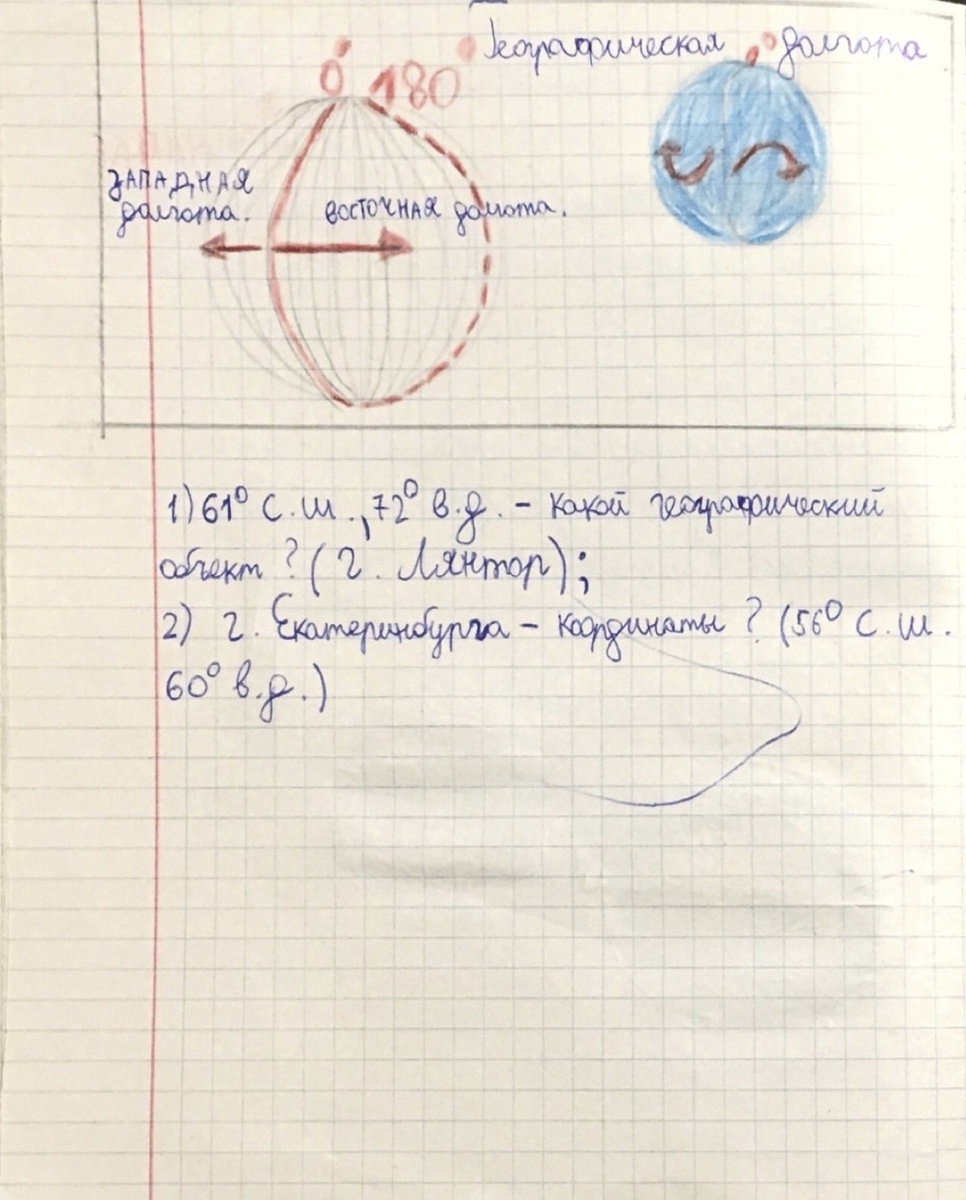 Географическая долгота
0° 180°
ЗАПАДНАЯ
долгота.
ВОСТОЧНАЯ долгота.
1) 61° с.ш., 72° в.д. – какой географический
объект ? (г. Лянтор);
2) г. Екатеринбурга – координаты ? (56° с.ш.
60° в.д.)